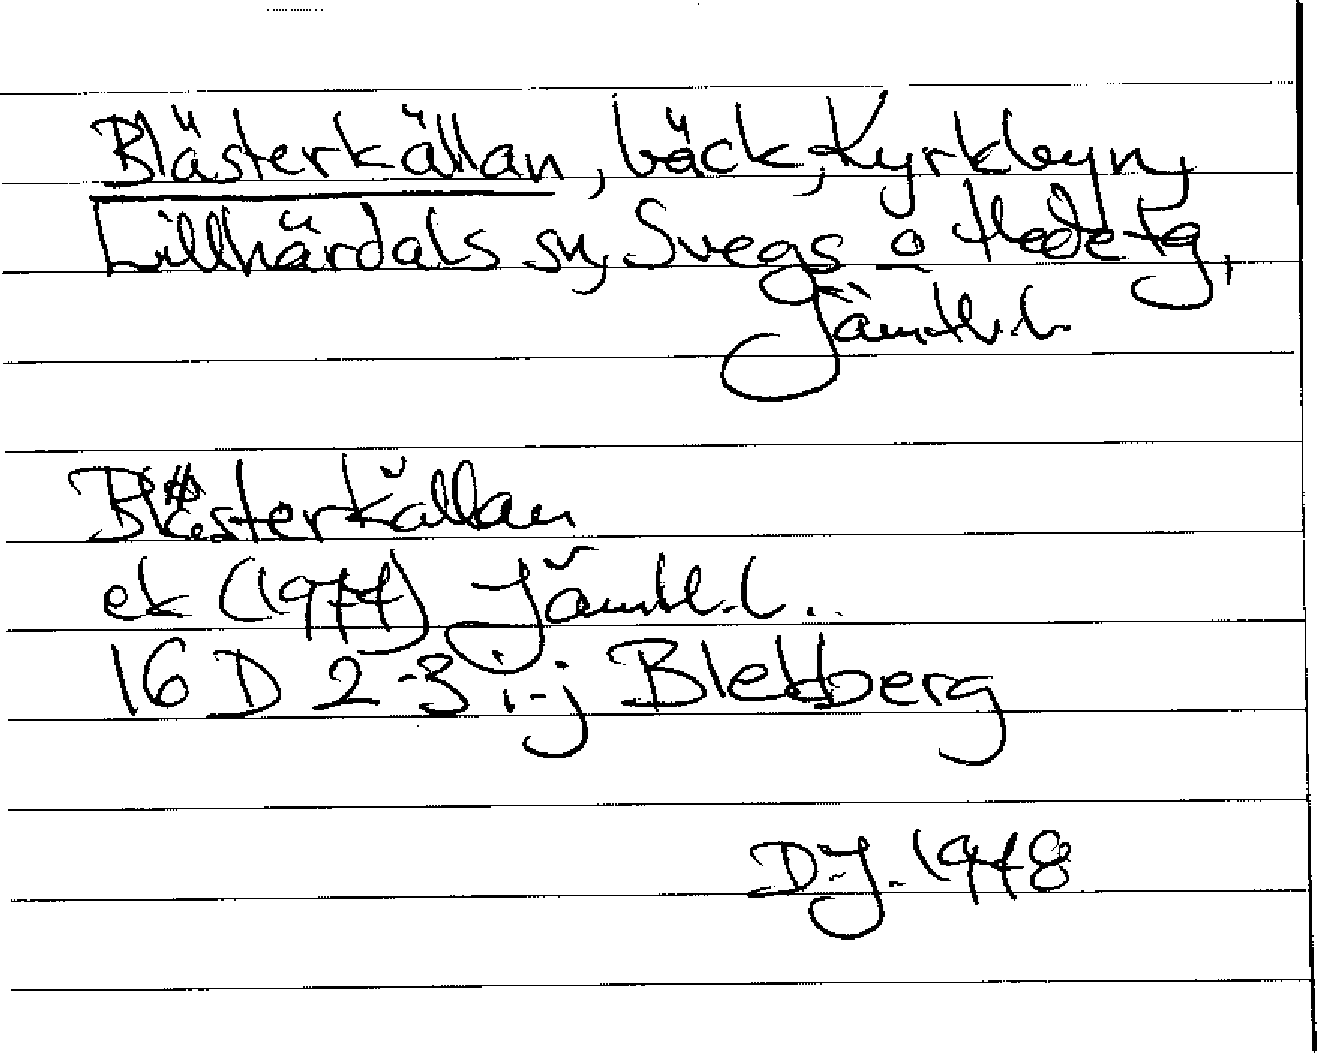 Blästerkällan, bäck, Kyrkbyn,
Lillhärdals sn, Svegs o Hede tg,
Jämtl.l.
Blästerkällan
ek (1977) Jämtl.l..
16 D 2-3 i-j Blekberg
D.J. 1978